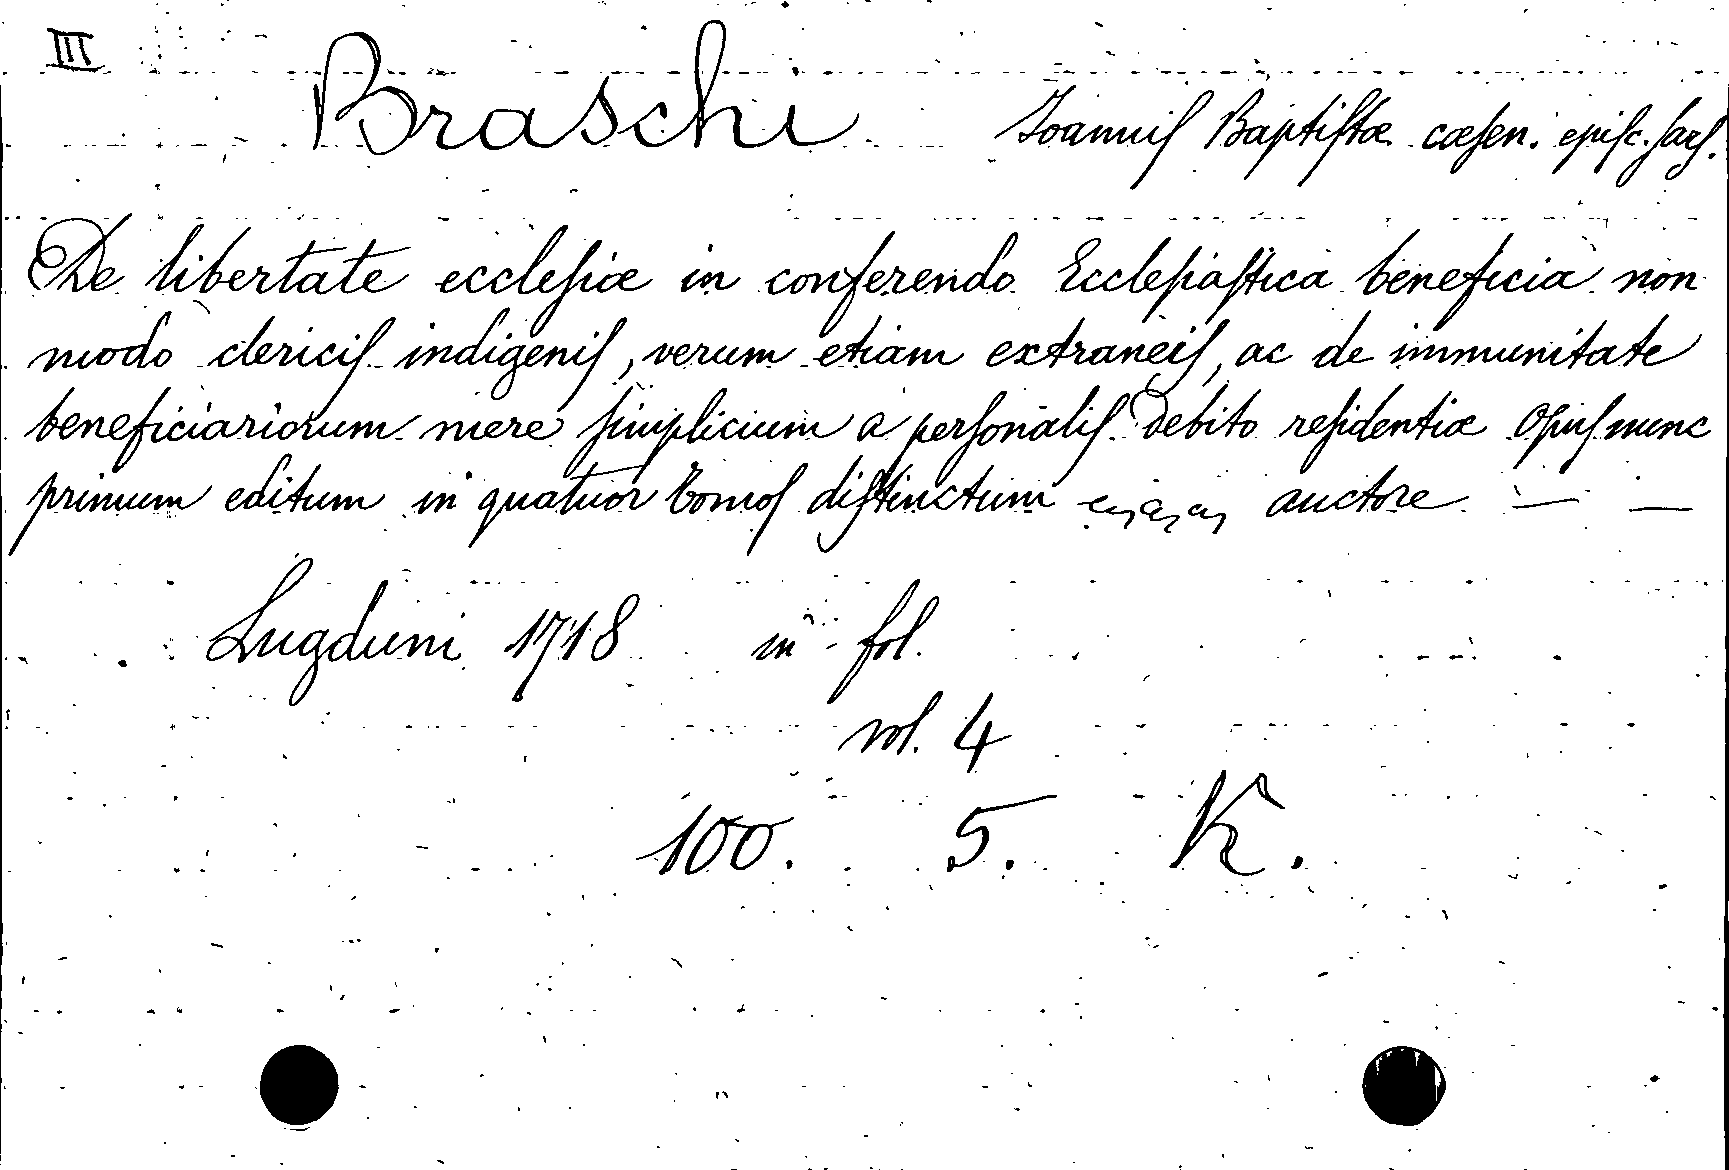 III
Braschi Joannis Baptistæ cæsen. episc. sars.
De libertate ecclesiæ in conferendo Ecclesiastica beneficia non
modo clericis indigenis, verum etiam extraneis, ac de immunitate
beneficiariorum mere simplicium a personalis debito residentiæ opus nunc
primum editum in quatuor tomos distinctum auctore — —
Lugduni 1718 in fol.
vol. 4
100. 5. K.